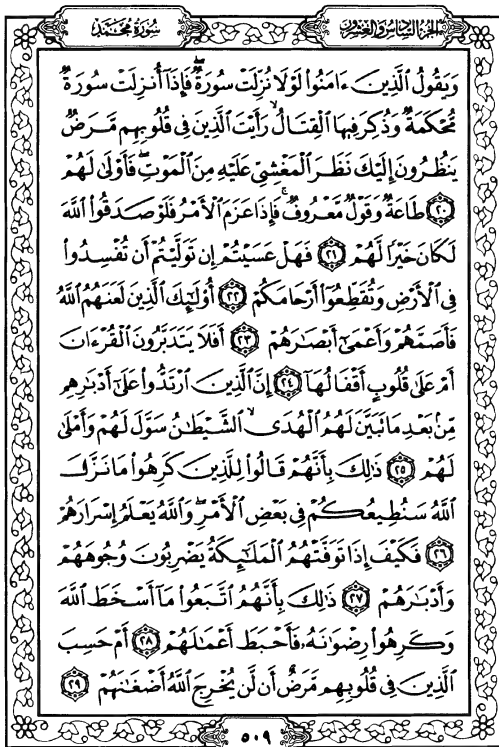 سورة محمد
الجزء السادس والعشرون
وَيَقُولُ ٱلَّذِينَ ءَامَنُوا۟ لَوْلَا نُزِّلَتْ سُورَةٌ ۖ فَإِذَآ أُنزِلَتْ سُورَةٌ
مُّحْكَمَةٌ وَذُكِرَ فِيهَا ٱلْقِتَالُ ۙ رَأَيْتَ ٱلَّذِينَ فِى قُلُوبِهِم مَّرَضٌ
يَنظُرُونَ إِلَيْكَ نَظَرَ ٱلْمَغْشِىِّ عَلَيْهِ مِنَ ٱلْمَوْتِ ۖ فَأَوْلَىٰ لَهُمْ
﴿٢٠﴾ طَاعَةٌ وَقَوْلٌ مَّعْرُوفٌ ۚ فَإِذَا عَزَمَ ٱلْأَمْرُ فَلَوْ صَدَقُوا۟ ٱللَّهَ
لَكَانَ خَيْرًا لَّهُمْ ﴿٢١﴾ فَهَلْ عَسَيْتُمْ إِن تَوَلَّيْتُمْ أَن تُفْسِدُوا۟
فِى ٱلْأَرْضِ وَتُقَطِّعُوٓا۟ أَرْحَامَكُمْ ﴿٢٢﴾ أُو۟لَٰٓئِكَ ٱلَّذِينَ لَعَنَهُمُ ٱللَّهُ
فَأَصَمَّهُمْ وَأَعْمَىٰٓ أَبْصَٰرَهُمْ ﴿٢٣﴾ أَفَلَا يَتَدَبَّرُونَ ٱلْقُرْءَانَ
أَمْ عَلَىٰ قُلُوبٍ أَقْفَالُهَآ ﴿٢٤﴾ إِنَّ ٱلَّذِينَ ٱرْتَدُّوا۟ عَلَىٰٓ أَدْبَٰرِهِم
مِّنۢ بَعْدِ مَا تَبَيَّنَ لَهُمُ ٱلْهُدَى ۙ ٱلشَّيْطَٰنُ سَوَّلَ لَهُمْ وَأَمْلَىٰ
لَهُمْ ﴿٢٥﴾ ذَٰلِكَ بِأَنَّهُمْ قَالُوا۟ لِلَّذِينَ كَرِهُوا۟ مَا نَزَّلَ
ٱللَّهُ سَنُطِيعُكُمْ فِى بَعْضِ ٱلْأَمْرِ ۖ وَٱللَّهُ يَعْلَمُ إِسْرَارَهُمْ
﴿٢٦﴾ فَكَيْفَ إِذَا تَوَفَّتْهُمُ ٱلْمَلَٰٓئِكَةُ يَضْرِبُونَ وُجُوهَهُمْ
وَأَدْبَٰرَهُمْ ﴿٢٧﴾ ذَٰلِكَ بِأَنَّهُمُ ٱتَّبَعُوا۟ مَآ أَسْخَطَ ٱللَّهَ
وَكَرِهُوا۟ رِضْوَٰنَهُۥ فَأَحْبَطَ أَعْمَٰلَهُمْ ﴿٢٨﴾ أَمْ حَسِبَ
ٱلَّذِينَ فِى قُلُوبِهِم مَّرَضٌ أَن لَّن يُخْرِجَ ٱللَّهُ أَضْغَٰنَهُمْ ﴿٢٩﴾
٥٠٩